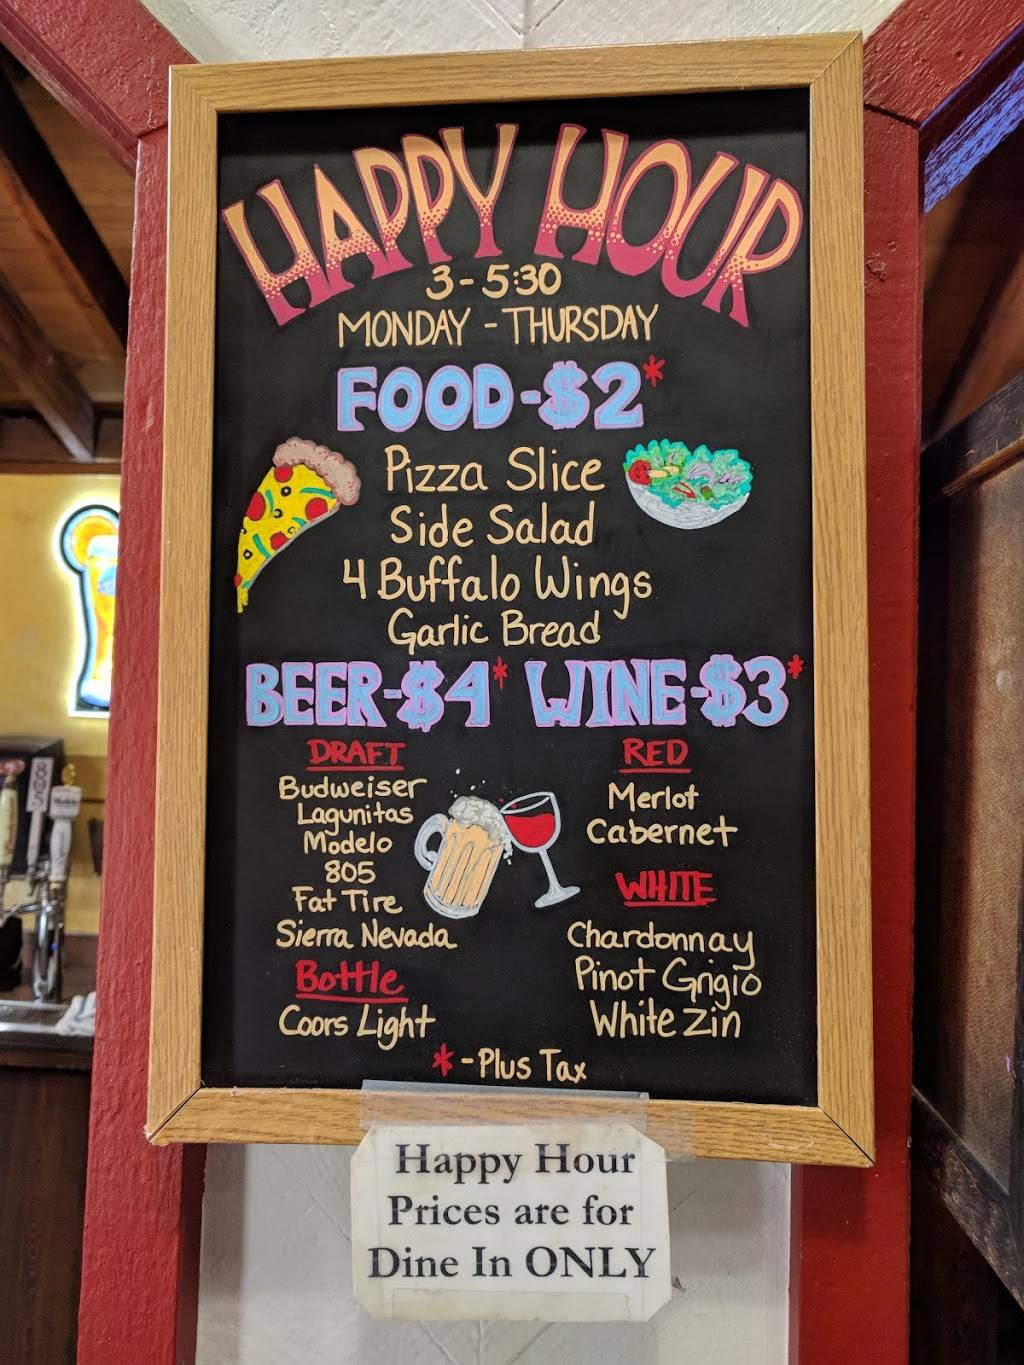 HAPPY HOUR
3-5:30
MONDAY - THURSDAY
FOOD-$2*
Pizza Slice
Side Salad
4 Buffalo Wings
Garlic Bread
BEER-$4* WINE-$3*
DRAFT
Budweiser
Lagunitas
Modelo
805
Fat Tire
Sierra Nevada
Bottle
Coors Light
RED
Merlot
Cabernet
WHITE
Chardonnay
Pinot Grigio
White Zin
* -Plus Tax
Happy Hour
Prices are for
Dine In ONLY
805